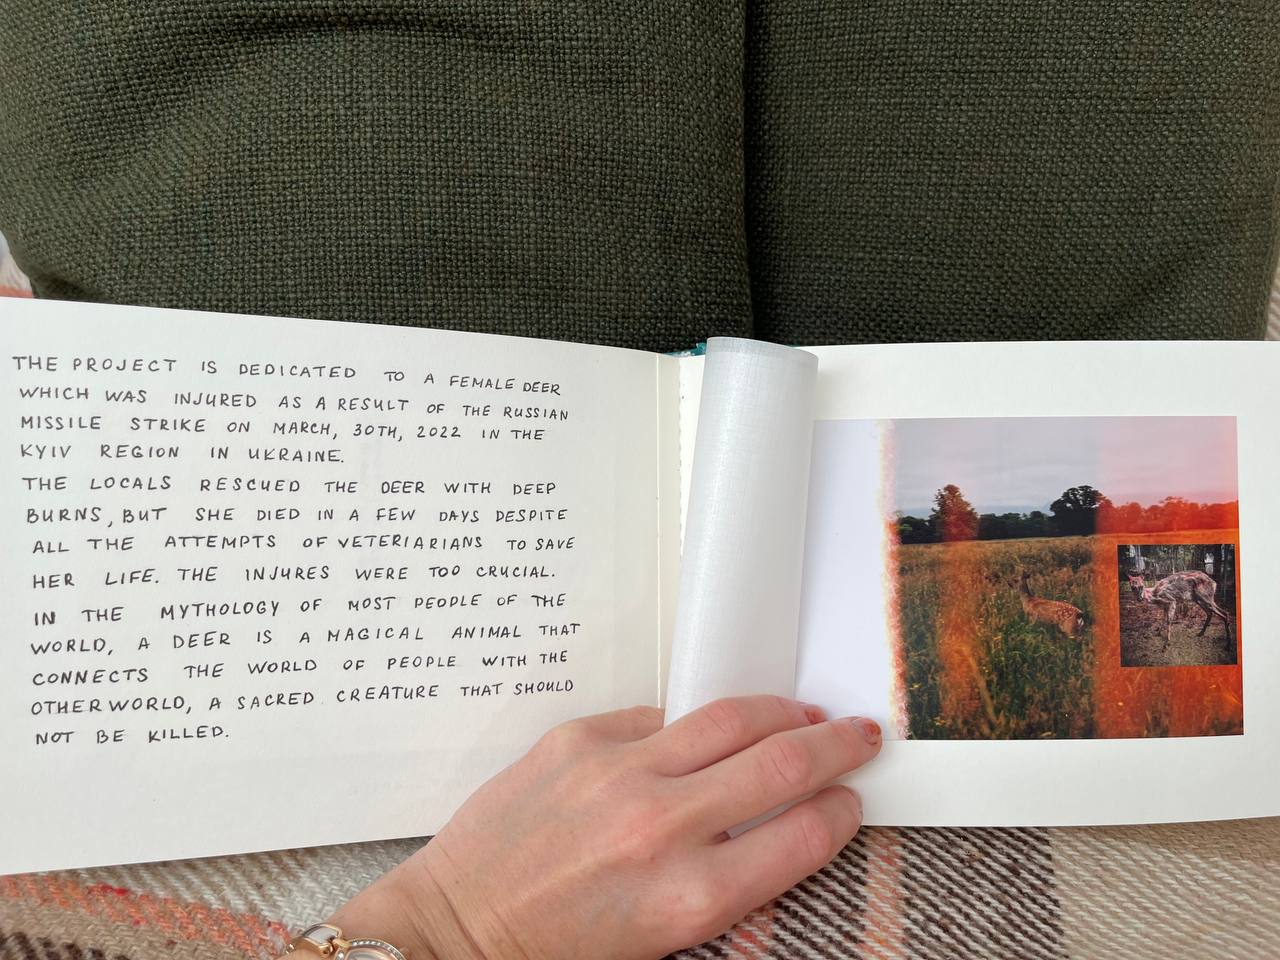 THE PROJECT IS DEDICATED TO A FEMALE DEER
WHICH WAS INJURED AS A RESULT OF THE RUSSIAN
MISSILE STRIKE ON MARCH, 30TH, 2022 IN THE
KYIV REGION IN UKRAINE.
THE LOCALS RESCUED THE DEER WITH DEEP
BURNS, BUT SHE DIED IN A FEW DAYS DESPITE
ALL THE ATTEMPTS OF VETERIARIANS TO SAVE
HER LIFE. THE INJURES WERE TOO CRUCIAL.
IN THE MYTHOLOGY OF MOST PEOPLE OF THE
WORLD, A DEER IS A MAGICAL ANIMAL THAT
CONNECTS THE WORLD OF PEOPLE WITH THE
OTHERWORLD, A SACRED CREATURE THAT SHOULD
NOT BE KILLED.